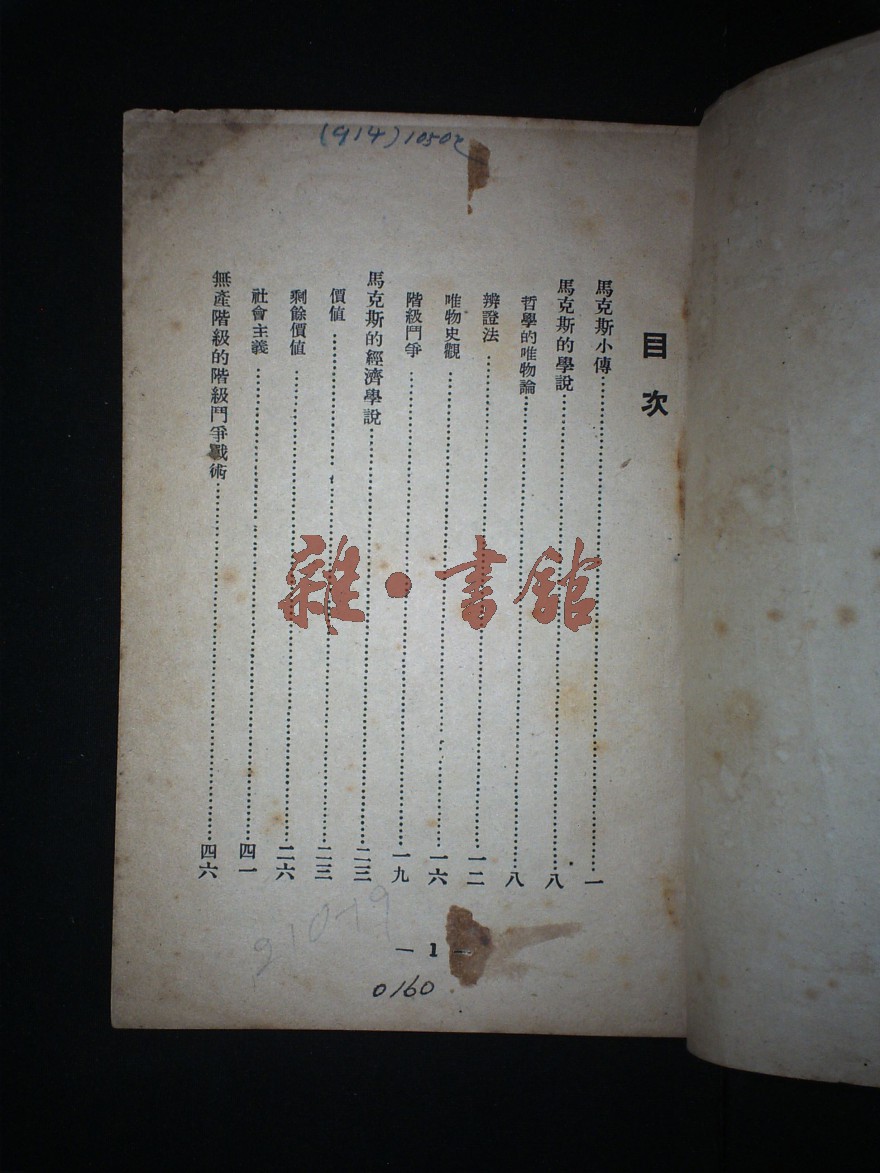 (914)10502
目次
馬克斯小傳……一
馬克斯的學說……八
哲學的唯物論……八
辨證法……一二
唯物史觀……一六
階級鬥爭……一九
馬克斯的經濟學說……二三
價值……二三
剩餘價值……二六
社會主義……四一
無產階級的階級鬥爭戰術……四六
雜·書館
— 1 —
0160